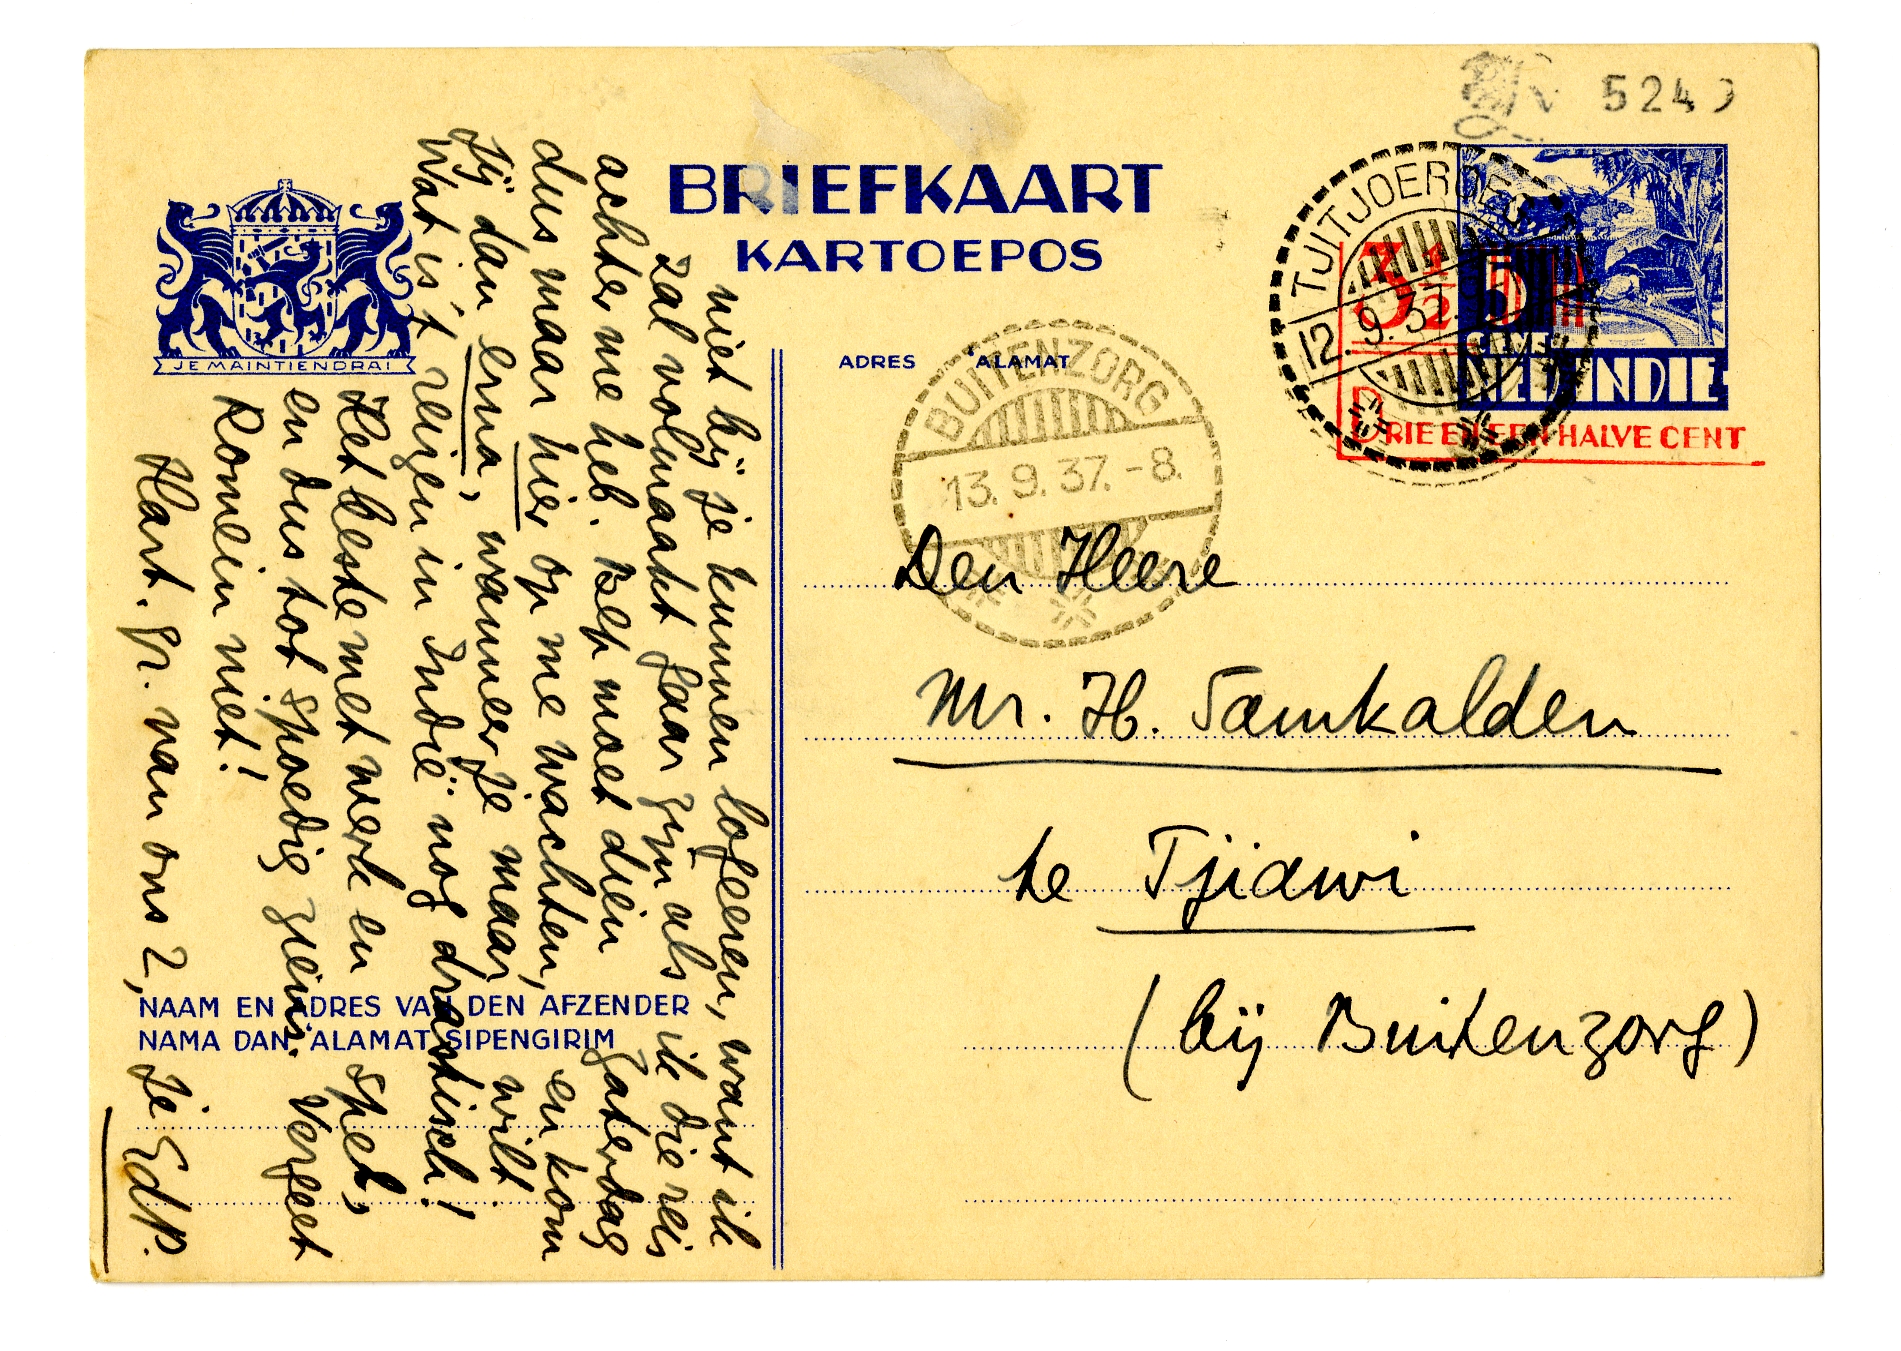 5249
BRIEFKAART
KARTOEPOS
JE MAINTIENDRAI
ADRES 'ALAMAT
TJITJOEROEG
12.9.37.
3½ 5
CENT
NED. INDIE
DRIE EN EEN HALVE CENT
BUITENZORG
13.9.37.-8.
Den Heere
Mr. H. Samkalden
te Tjiawi
(bij Buitenzorg)
niet bij je kunnen logeeren, want ik
zal volmaakt gaar zijn als ik die reis
achter me heb. Bep moet dien Zaterdag
dus maar hier op me wachten, en kom
jij dan erna, wanneer je maar wilt.
Wat is 't reizen in Indië nog drastisch!
Het beste met werk en spel,
en dus tot spoedig ziens. Vergeet
Romein niet!
Hart. gr. van ons 2, je EdP.
NAAM EN ADRES VAN DEN AFZENDER
NAMA DAN 'ALAMAT SIPENGIRIM